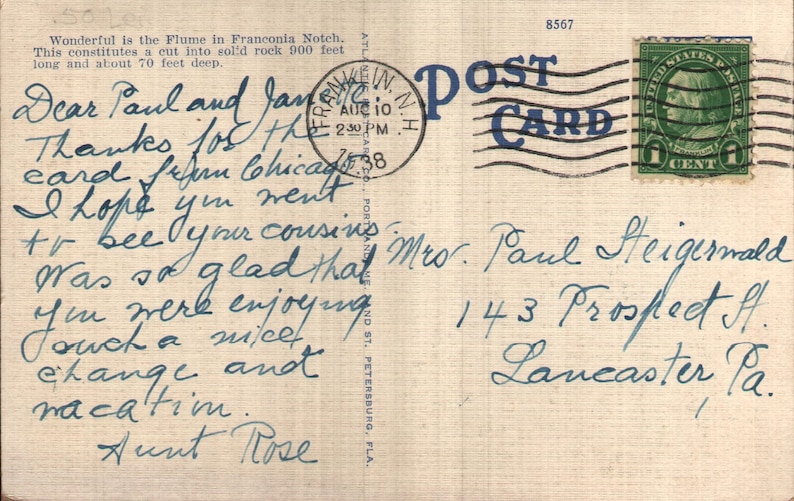 8567
Wonderful is the Flume in Franconia Notch.
This constitutes a cut into solid rock 900 feet
long and about 70 feet deep.
Dear Paul and Jan
Thanks for the
card from Chicago
I hope you went
to see your cousins.
Was so glad that
you were enjoying
such a nice
change and
vacation.
Aunt Rose
POST CARD CO., PORTLAND, ME. AND ST. PETERSBURG, FLA.
FRANKLIN, N.H
AUG 10
2 30 PM
38
POST
CARD
UNITED STATES POSTAGE
FRANKLIN
1 CENT 1
Mrs. Paul Steigerwald
143 Prospect St.
Lancaster, Pa.